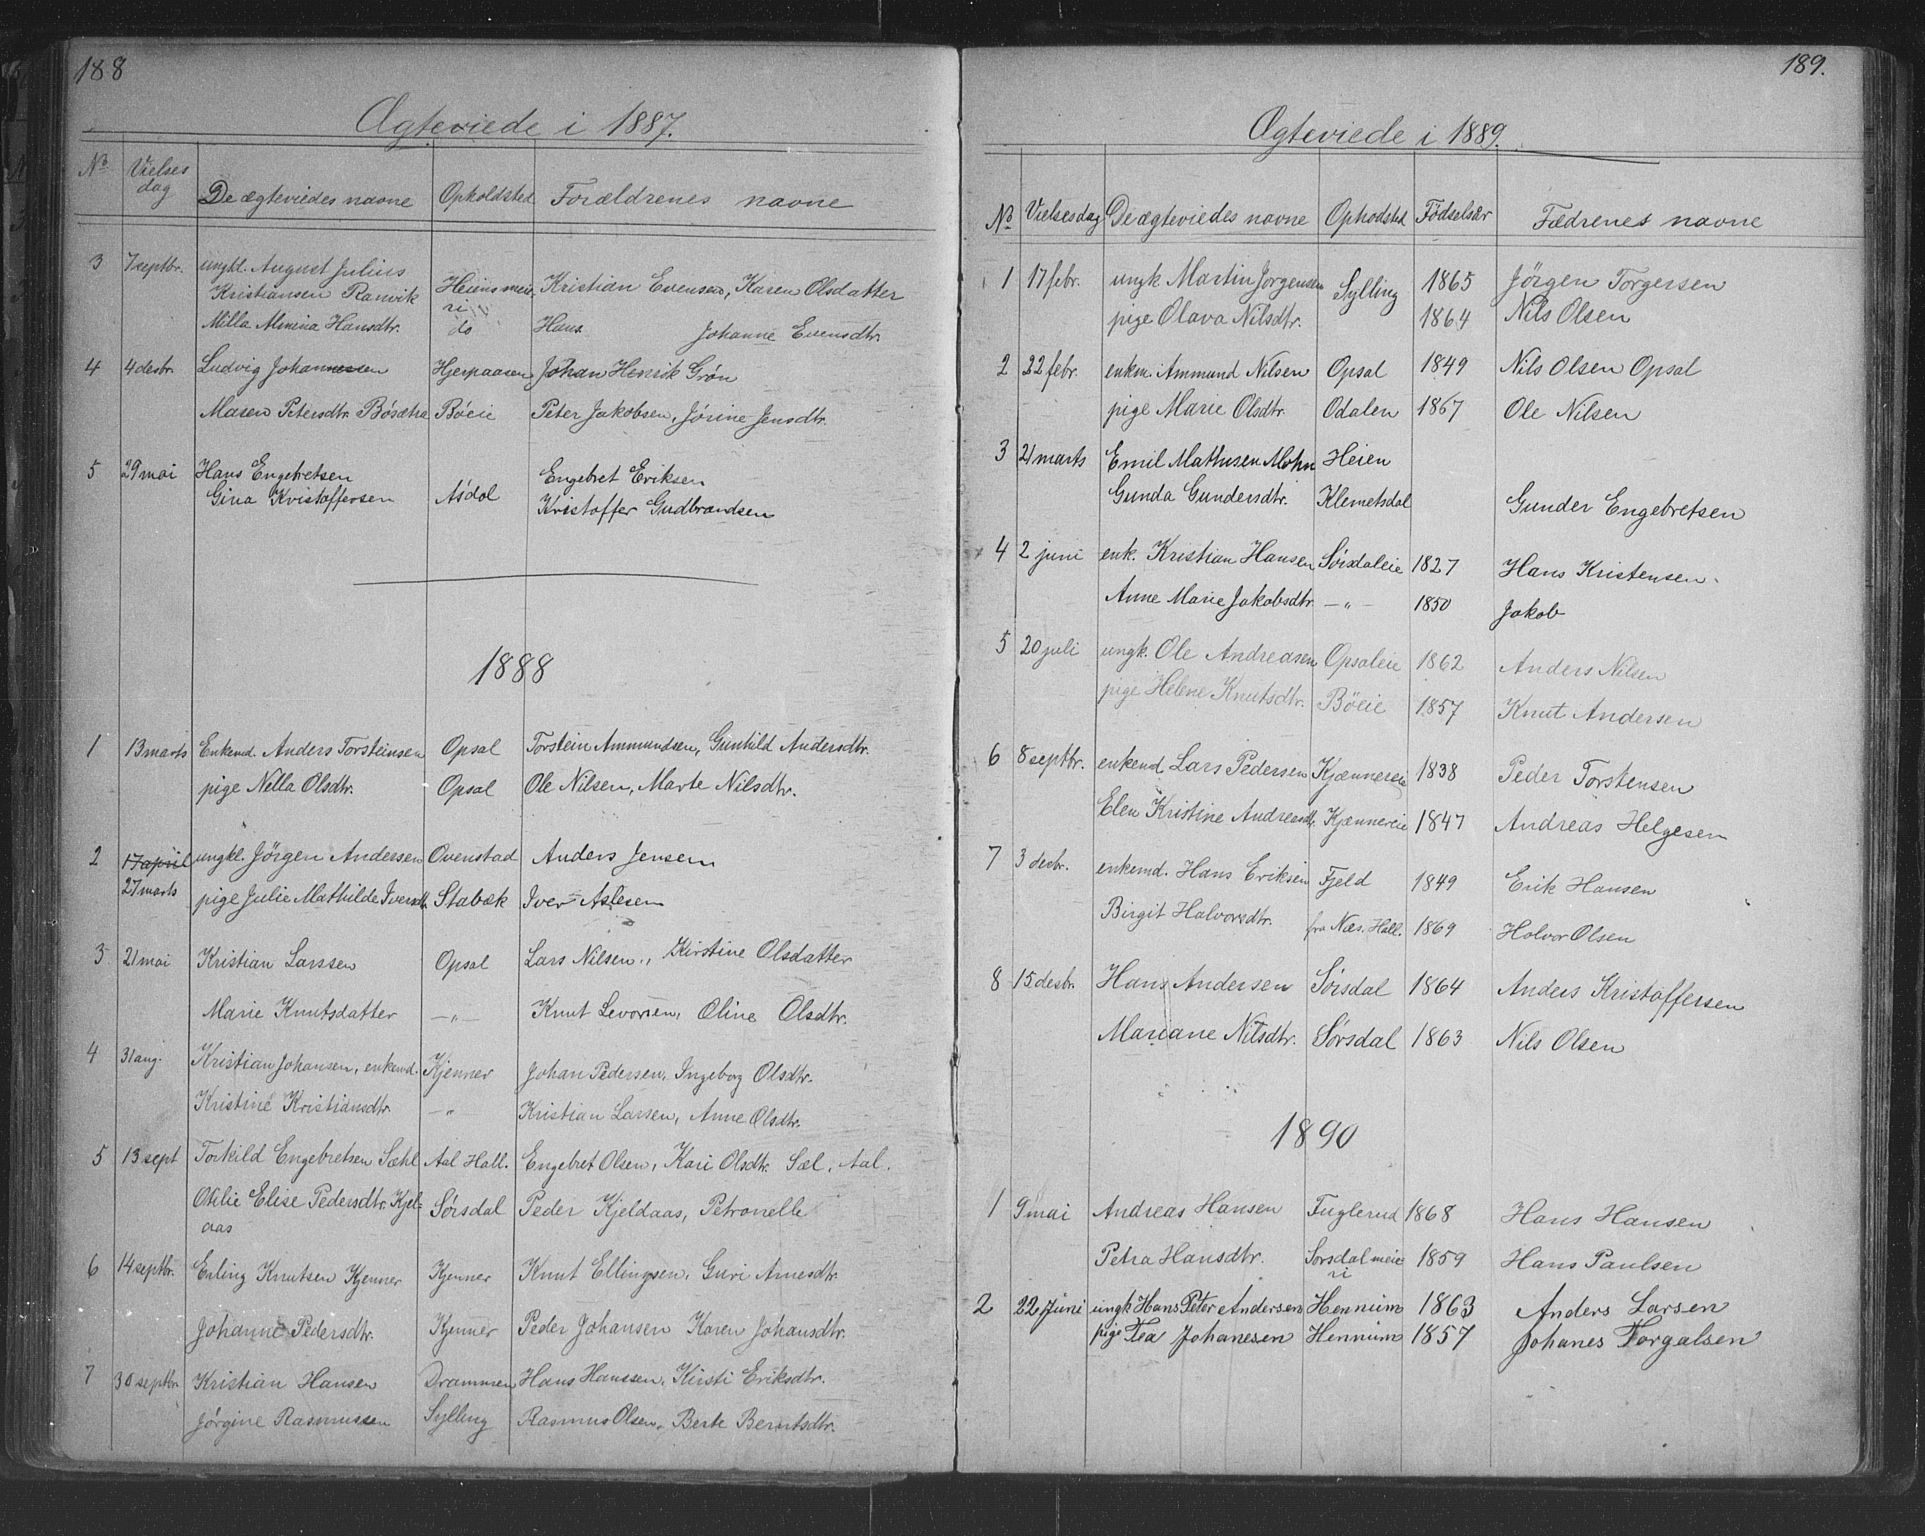 188
Ægteviede i 1887.
No Vielses dag De ægteviedes navne Opholdsted Forældrenes navne
3 7 septbr. ungkl. August Julius
Kristiansen Ranvik Heimsmeieri Kristian Evensen, Karen Olsdatter
Milla Almina Hansdtr. do Hans Johanne Evensdtr.
4 4 desbr. Ludvig Johannessen Hjerpaasen Johan Henrik Grøn
Maren Petersdtr. Bösætra Böeie Peter Jakobsen, Jørine Jensdtr.
5 29 mai Hans Engebretsen Engebret Eriksen
Gina Kristoffersen Åsdøl Kristoffer Gudbrandsen
1888
1 13 marts Enkemd. Anders Torsteinsen Opsal Torstein Ammundsen, Gunhild Andersdtr.
pige Nella Olsdtr. Opsal Ole Nilsen, Marte Nilsdtr.
2 17 april ungkl. Jørgen Andersen Ovenstad Anders Jensen
27 marts pige Julie Mathilde Iversdtr. Stabæk Iver Aslesen
3 21 mai Kristian Larssen Opsal Lars Nilsen, Kirstine Olsdatter
Marie Knutsdatter —„— Knut Levorsen, Oline Olsdtr.
4 31 aug. Kristian Johansen, enkemd. Kjenner Johan Pedersen, Ingeborg Olsdtr.
Kristine Kristiansdtr. —„ Kristian Larsen, Anne Olsdtr.
5 13 sept Torkild Engebretsen Sæhl Aal Hall. Engebret Olsen, Kari Olsdtr. Sæl, Aal.
Otilie Elise Pedersdtr. Kjel- Sørsdal Peder Kjeldaas, Petronelle
aas
6 14 septbr. Erling Knutsen Kjenner Kjenner Knut Ellingsen, Guri Arnesdtr.
Johanne Pedersdtr. Kjenner Peder Johansen Karen Johansdtr.
7 30 septbr. Kristian Hansen Drammen Hans Hanssen, Kirsti Eriksdtr.
Jørgine Rasmussen Sylling Rasmus Olsen, Berte Berntsdtr.
189.
Ægteviede i 1889.
No Vielsesdag De ægteviedes navne Ophodsted Födselsår Fædrenes navne
1 17 febr. ungk. Martin Jørgensen Sylling 1865 Jörgen Torgersen
pige Olava Nilsdtr. 1864 Nils Olsen
2 22 febr. enkm. Ammund Nilsen Opsal 1849 Nils Olsen Opsal
pige Marie Olsdtr. Odalen 1867 Ole Nilsen
3 21 marts Emil Mathisen Mohn Heien
Gunda Gundersdtr. Klemetsdal Gunder Engebretsen
4 2 juni enk. Kristian Hansen Sørsdaleie 1827 Hans Kristensen
Anne Marie Jakobsdtr. —„— 1850 Jakob
5 20 juli ungk. Ole Andreasen Opsaleie 1862 Anders Nilsen
pige Helene Knutsdtr. Böeie 1857 Knut Andersen
6 8 septbr. enkemd. Lars Pedersen Kjænnereie 1838 Peder Torstensen
Elen Kristine Andreasdtr. Kjænnereie 1847 Andreas Helgesen
7 3 desbr. enkemd. Hans Eriksen Fjeld 1849 Erik Hansen
Birgit Halvorsdtr. fra Næs. Hall. 1869 Holvor Olsen
8 15 desbr. Hans Andersen Sørsdal 1864 Anders Kristoffersen
Mariane Nilsdtr. Sørsdal 1863 Nils Olsen
1890
1 9 mai Andreas Hansen Fuglerud 1868 Hans Hansen
Petra Hansdtr. Sorsdalmeieri 1859 Hans Paulsen
2 22 Juni ungk Hans Peter Andersen Hennum 1863 Anders Larsen
pige Tea Johanesen Hennum 1857 Johanes Torgalsen